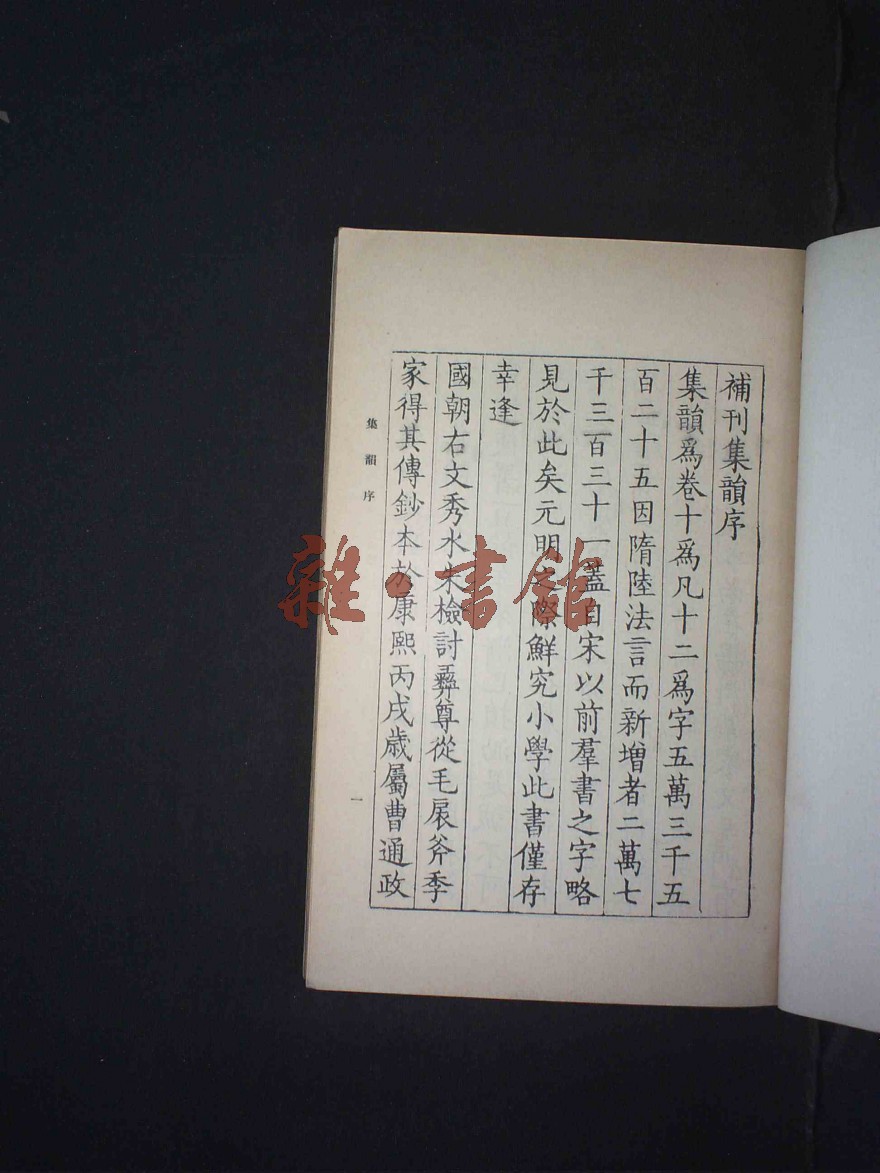 補刊集韻序
集韻爲卷十爲凡十二爲字五萬三千五
百二十五因隋陸法言而新增者二萬七
千三百三十一蓋自宋以前羣書之字略
見於此矣元明之際鮮究小學此書僅存
幸逢
國朝右文秀水朱檢討彝尊從毛扆斧季
家得其傳鈔本於康熙丙戌歲屬曹通政
集韻序
一
雜·書館